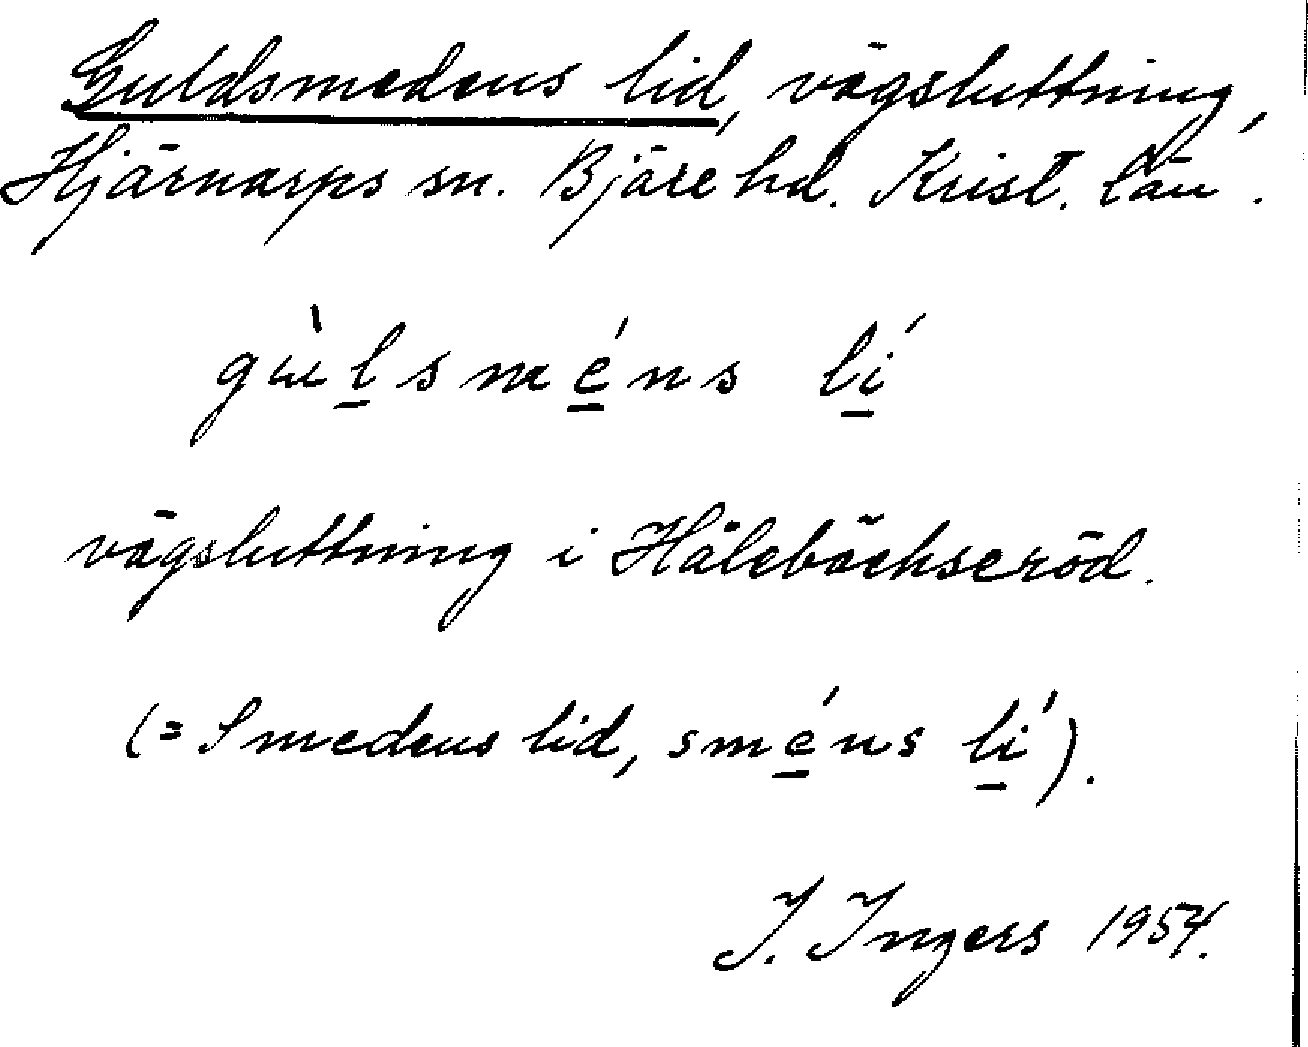 Guldsmedens lid, vägsluttning,
Hjärnarps sn. Bjäre hd. Krist. län.
gùlsméns lí
vägsluttning i Hålebäckseröd.
(= Smedens lid, sméns lí).
I. Ingers 1954.